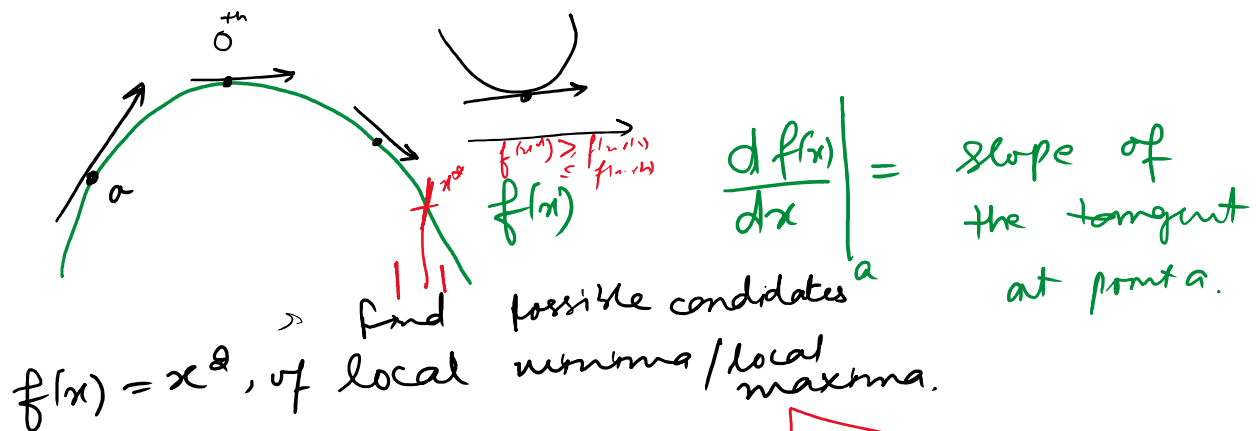 0th
a
x*
f(x*) ≥
≤
f(x)
df(x)/dx |a = slope of
the tangent
at point a.
find possible candidates
f(x) = x², of local minima/local
maxima.